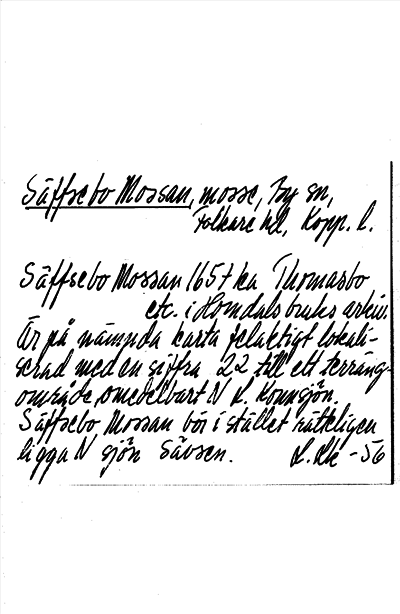 Säffsebo Mossan, mosse, By sn,
Folkare hd, Kopp. l.
Säffsebo Mossan 1657 ka Thomasbo
etc. i Horndals bruks arkiv.
Är på nämnda karta felaktigt lokali-
serad med en siffra 22 till ett terräng-
område omedelbart N L. Konnsjön.
Säffsebo Mossan bör i stället rätteligen
ligga N sjön Sävsen.
-56